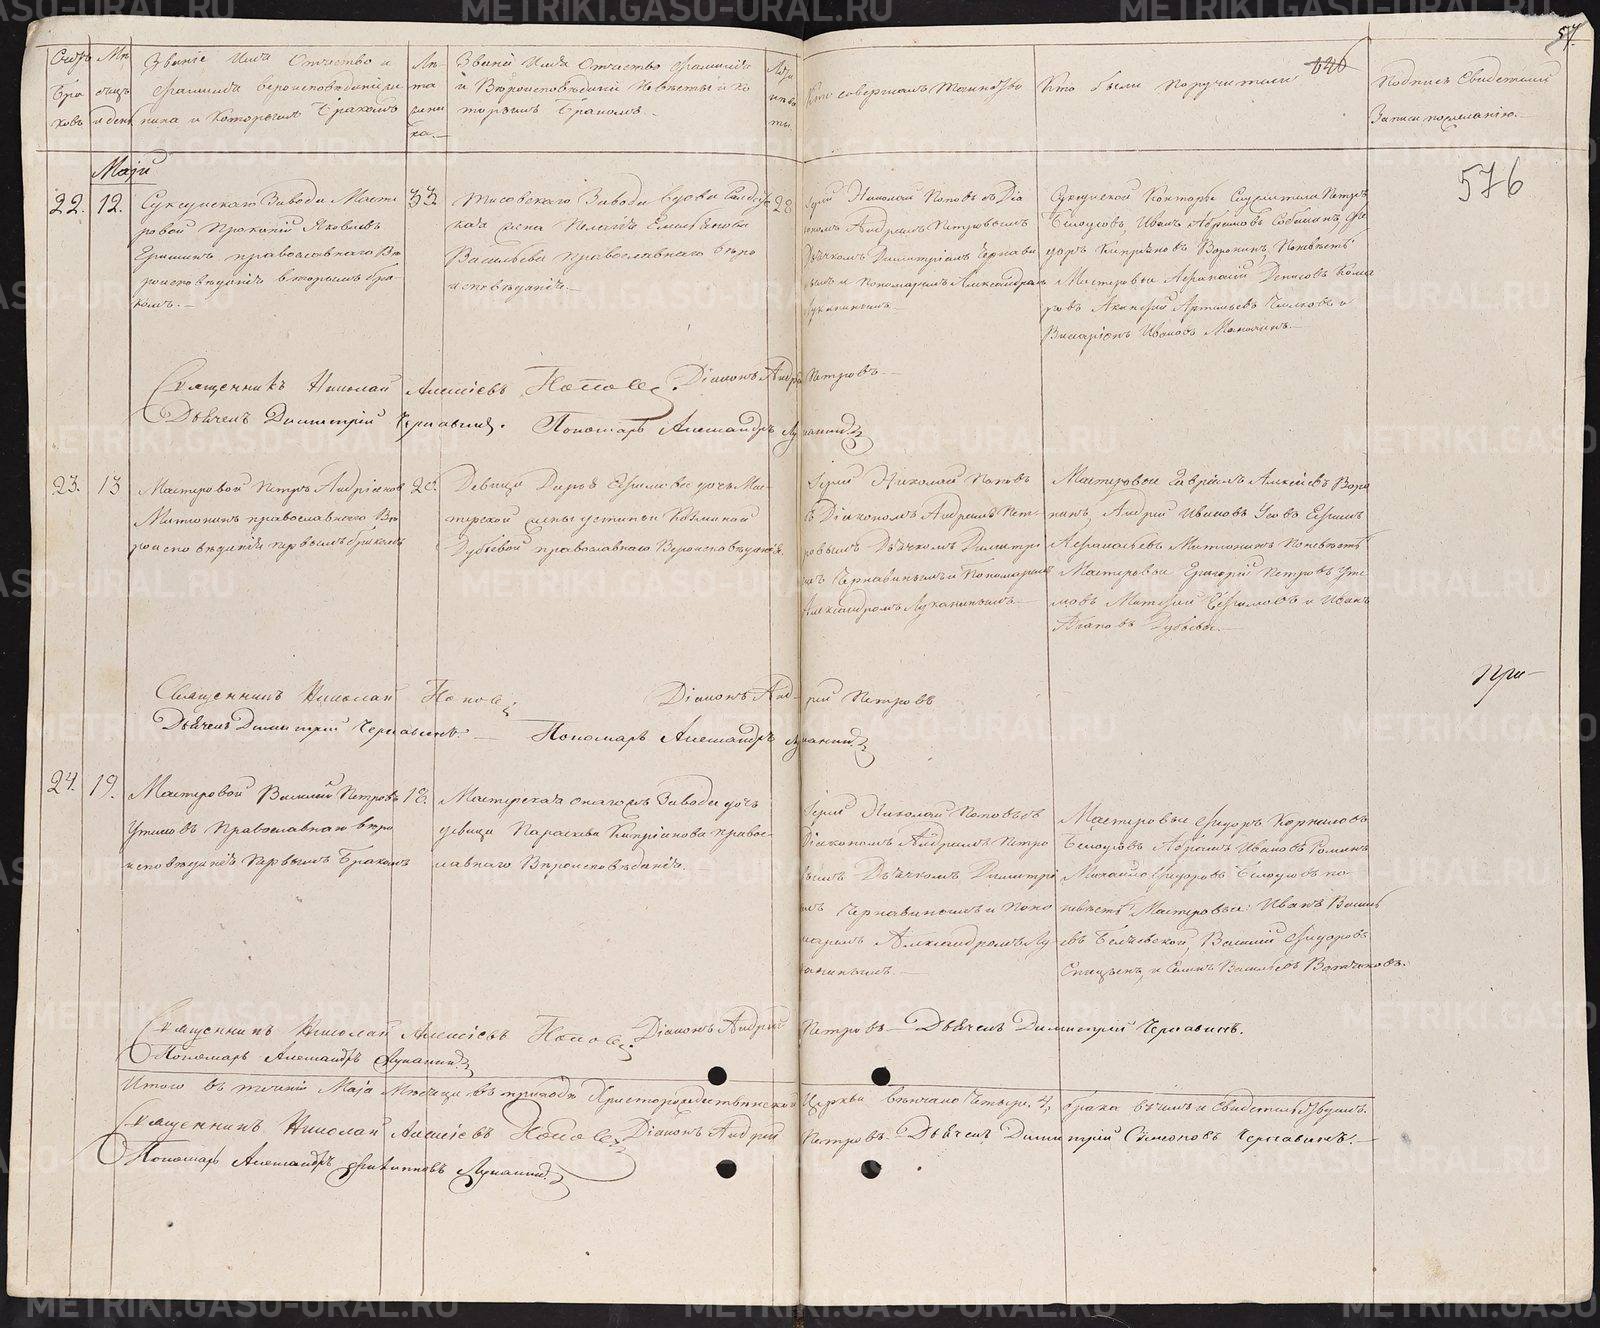 57.
646
576
Счетъ браковъ
Мѣсяцъ и день
Званіе Имя Отчество и
Фамилія вероисповѣданіе
и которымъ бракомъ
Лѣта жениха.
Званіе Имя Отчество Фамилія
и Вѣроисповѣданіе Невѣсты и ко
торымъ бракомъ.
Лѣта невѣсты
Кто совершалъ Таинство
Кто были поручители
Подпись Свидетелей
Записи по желанію.
Маій
22. 12.
Суксунскаго Завода Масте
ровой Прокопій Яковлевъ
православнаго Вѣ
роисповѣданія вторымъ бра
комъ.
33
Тисовскаго Завода вдова
жена Пелагія Емельянова
Васильева православнаго веро
исповѣданія.
28
Іерей Николай Поповъ съ Діа
кономъ Андреемъ Петровымъ
Дьячкомъ Димитріемъ Чернави
нымъ и Пономаремъ Александромъ
Луканинымъ.
Суксунской Конторы Служители Петръ
Белоусовъ, Иванъ Абрамовъ Фе
доръ Кипріяновъ Воронинъ, По невѣстѣ
Мастеровые Афанасій Денисовъ
Иванъ
Священникъ Николай Алексіевъ Поповъ. Діаконъ Андрей Петровъ.
Дьячекъ Димитрій Чернавинъ. Пономарь Александръ Луканинъ
23. 13
Мастеровой Петръ Андріяновъ
Митюнинъ православнаго Вѣ
роисповѣданія первымъ бракомъ
20.
Девица Дарья Ефимова дочь Мас
терской жены Устиньи Козминой
Дубьевой православнаго Вероисповѣданія.
Іерей Николай Поповъ
съ Діакономъ Андреемъ Пет
ровымъ Дьячкомъ Димитрі
емъ Чернавинымъ и Пономаремъ
Александромъ Луканинымъ.
Мастеровые Гаврилъ Алексѣевъ Воро
нинъ, Андрей Ивановъ Ефимъ
Афанасьевъ Митюнинъ По невѣстѣ
Мастеровые Григорій Петровъ Уте
мовъ Матфей Ефимовъ и Иванъ
Агаповъ Дубьевы.
При-
Священникъ Николай Поповъ Діаконъ Андрей Петровъ
Дьячекъ Димитрій Чернавинъ. Пономарь Александръ Луканинъ
24. 19.
Мастеровой Василій Петровъ
Утемовъ Православнаго веро
исповѣданія первымъ бракомъ
18.
Мастерская онагожъ Завода дочь
девица Параскева Кипріянова правос-
лавнаго Вѣроисповѣданія.
Іерей Николай Поповъ съ
Діакономъ Андреемъ Петро
вымъ Дьячкомъ Димитрі
емъ Чернавинымъ и Поно
маремъ Александромъ Лу-
канинымъ.
Мастеровые Фидоръ Корниловъ
Белоусовъ Абрамъ Ивановъ
Михайло Фидоровъ Белоусовъ по
невѣстѣ Мастеровые Иванъ Василь
евъ Василій Фидоровъ
и Семенъ Васильевъ
Священникъ Николай Алексіевъ Поповъ. Діаконъ Андрей Петровъ Дьячекъ Димитрій Чернавинъ.
Пономарь Александръ Луканинъ
Итого въ теченіи Маія Мѣсяца въ приходѣ Христорождественской Церкви венчано Четыре, 4, брака въ чемъ и Свидетельствуемъ.
Священникъ Николай Алексіевъ Поповъ Діаконъ Андрей Петровъ. Дьячекъ Димитрій Симеоновъ Чернавинъ.
Пономарь Александръ Филипповъ Луканинъ.